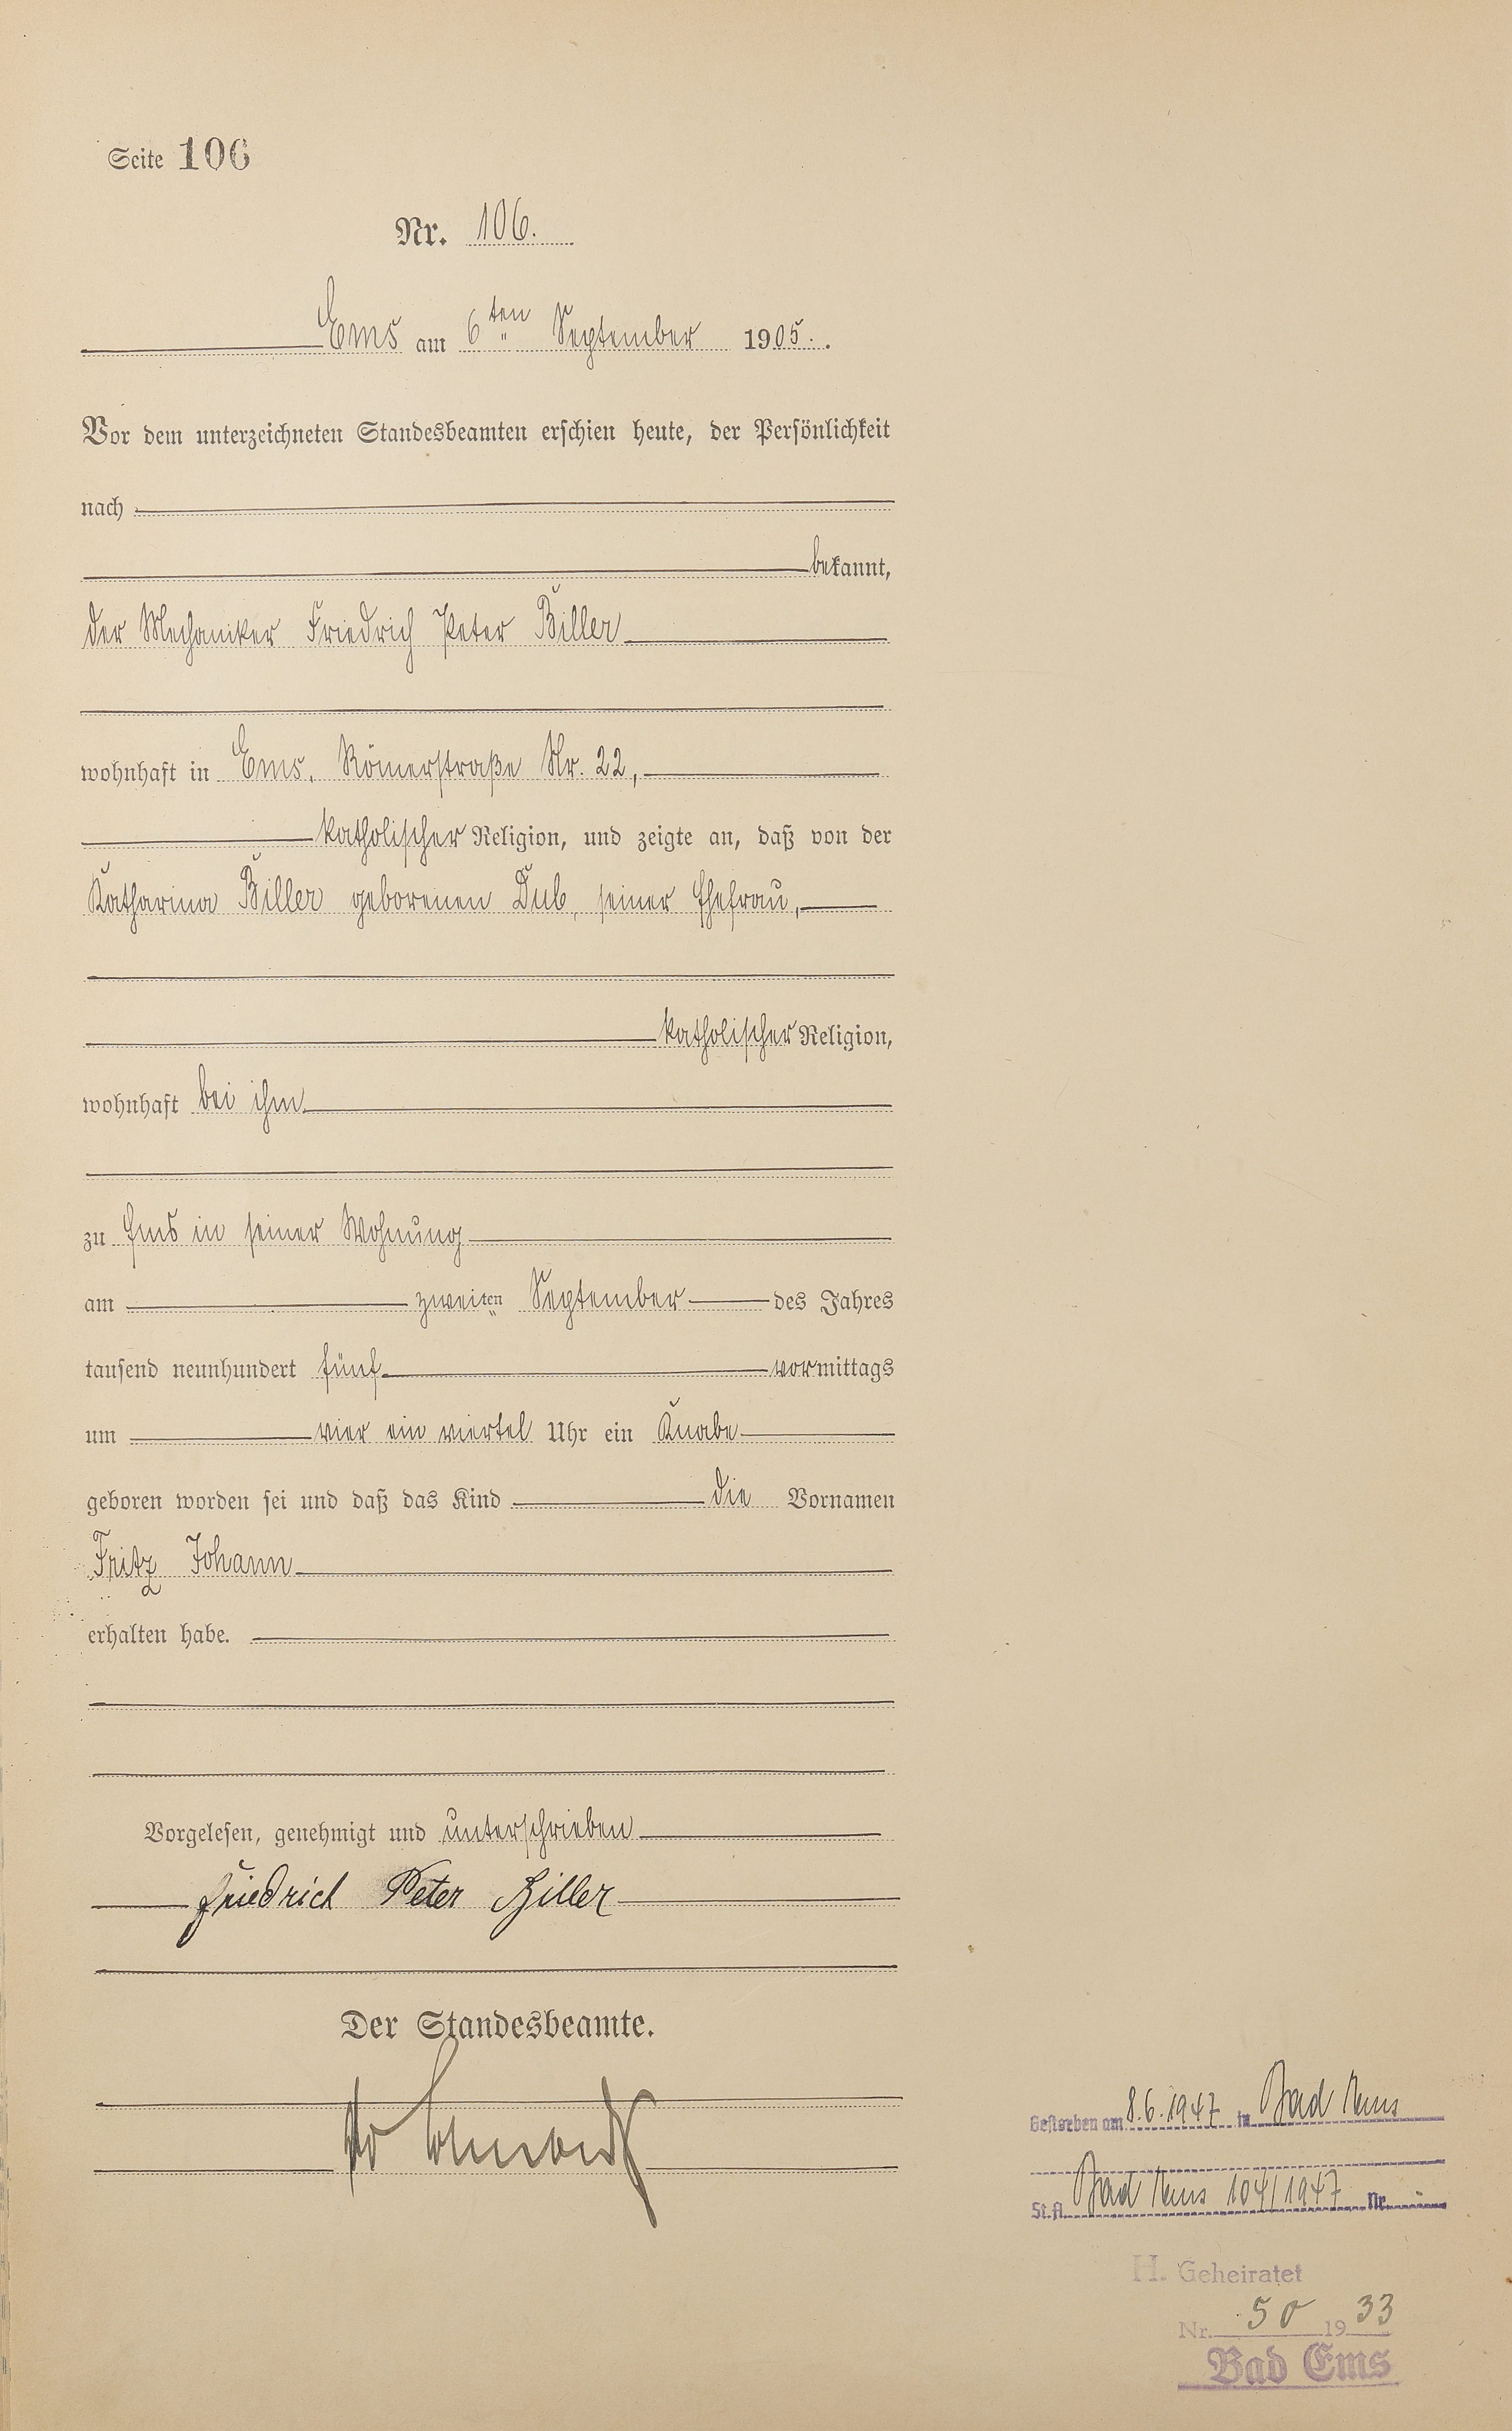 Seite 106
Nr. 106.
Ems am 6ten September 1905.
Vor dem unterzeichneten Standesbeamten erschien heute, der Persönlichkeit
nach
bekannt,
der Mechaniker Friedrich Peter Biller
wohnhaft in Ems, Römerstraße Nr. 22,
katholischer Religion, und zeigte an, daß von der
Katharina Biller geborenen Dub, seiner Ehefrau,
katholischer Religion,
wohnhaft bei ihm
zu Ems in seiner Wohnung
am zweiten September des Jahres
tausend neunhundert fünf vormittags
um vier ein viertel Uhr ein Knabe
geboren worden sei und daß das Kind die Vornamen
Fritz Johann
erhalten habe.
Vorgelesen, genehmigt und unterschrieben
Friedrich Peter Biller
Der Standesbeamte.
Gestorben am 8.6.1947 in Bad Ems
St.A. Bad Ems 104/1947 Nr. -
H. Geheiratet
Nr. 50 1933
Bad Ems